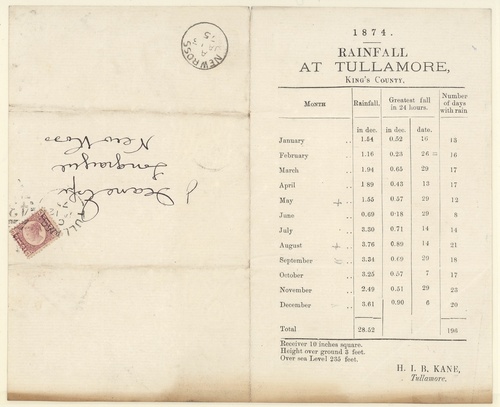 1874.
RAINFALL
AT TULLAMORE,
KING'S COUNTY.
MONTH Rainfall. Greatest fall in 24 hours. Number of days with rain
in dec. in dec. date.
January .. 1.54 0.52 16 18
February .. 1.16 0.23 26 = 16
March .. 1.94 0.65 29 17
April .. 1 89 0.43 13 17
May + .. 1.55 0.57 29 12
June .. 0.69 0.18 29 8
July .. 3.30 0.71 14 14
August + .. 3.76 0.89 14 21
September = .. 3.34 0.69 29 18
October .. 3.25 0.57 7 17
November .. 2.49 0.51 29 23
December .. 3.61 0.90 6 20
Total 28.52 196
Receiver 10 inches square.
Height over ground 3 feet.
Over sea Level 235 feet.
H. I. B. KANE,
Tullamore.
NEW ROSS
New Ross
TULL